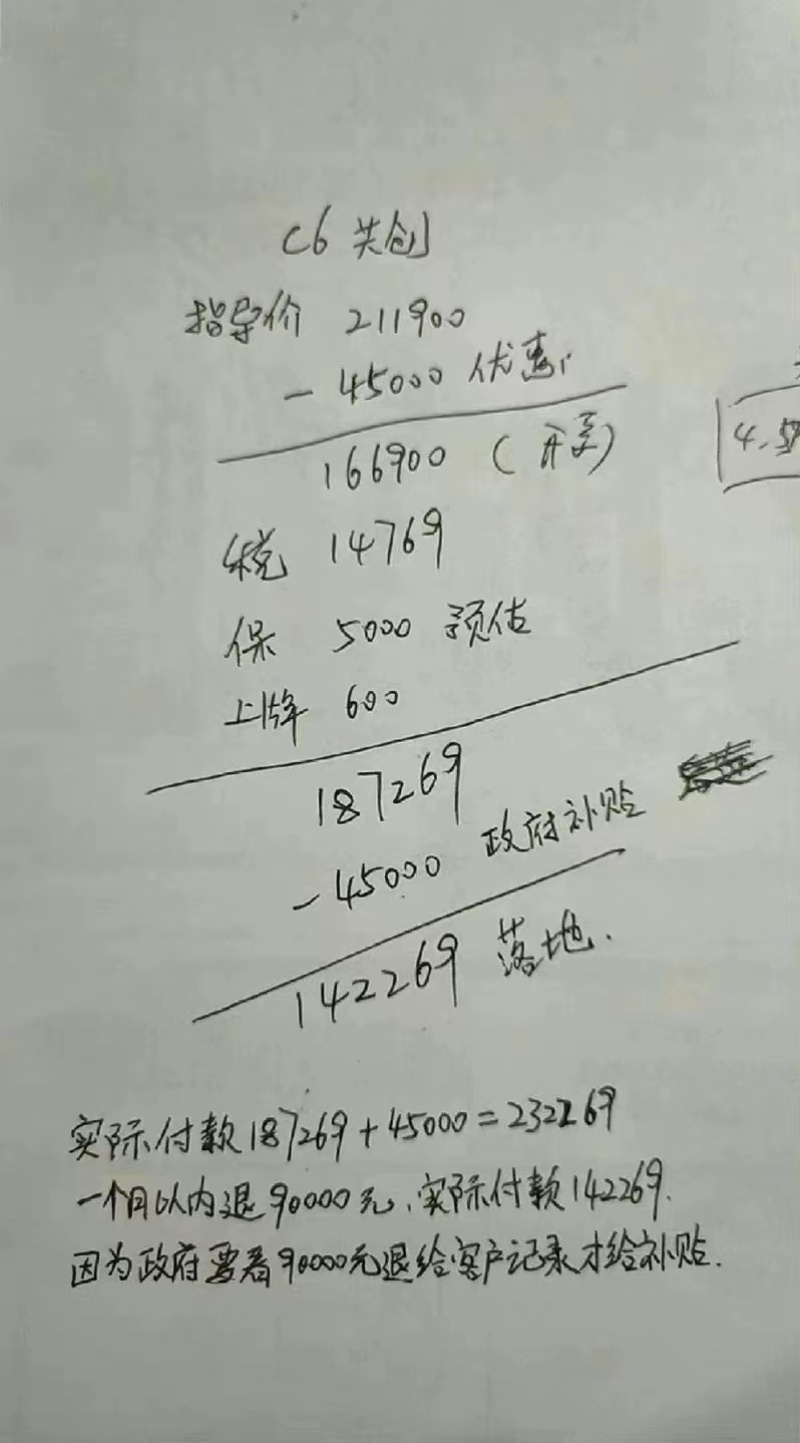 C6 共创
指导价 211900
- 45000 优惠
166900 (开票)
4.5
税 14769
保 5000 预估
上牌 600
187269
- 45000 政府补贴
142269 落地.
实际付款187269+45000=232269
一个月以内退90000元,实际付款142269.
因为政府要看90000元退给客户记录才给补贴.